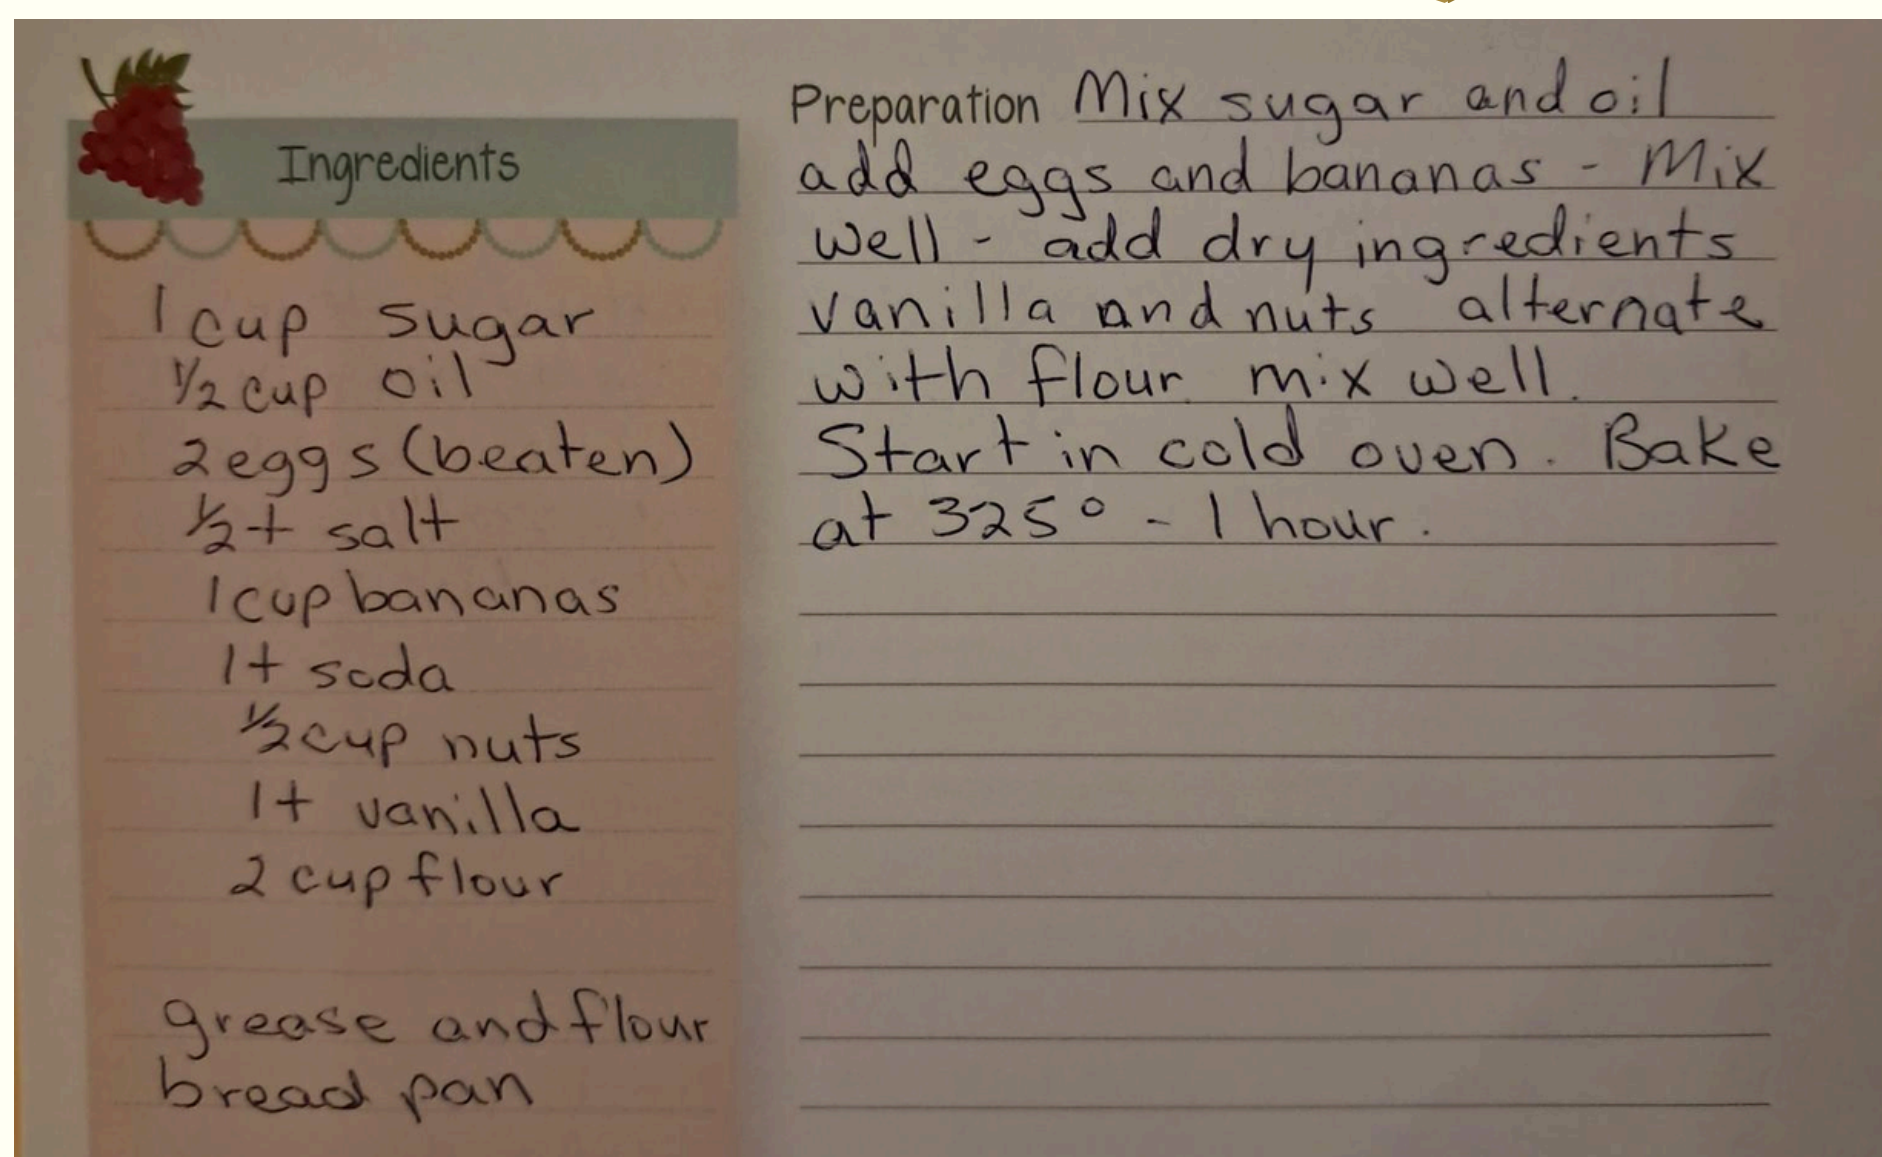 Ingredients
1 cup sugar
1/2 cup oil
2 eggs (beaten)
1/2 t salt
1 cup bananas
1 t soda
1/2 cup nuts
1 t vanilla
2 cup flour
grease and flour
bread pan
Preparation Mix sugar and oil
add eggs and bananas - Mix
well - add dry ingredients
vanilla and nuts alternate
with flour. mix well.
Start in cold oven. Bake
at 325° - 1 hour.